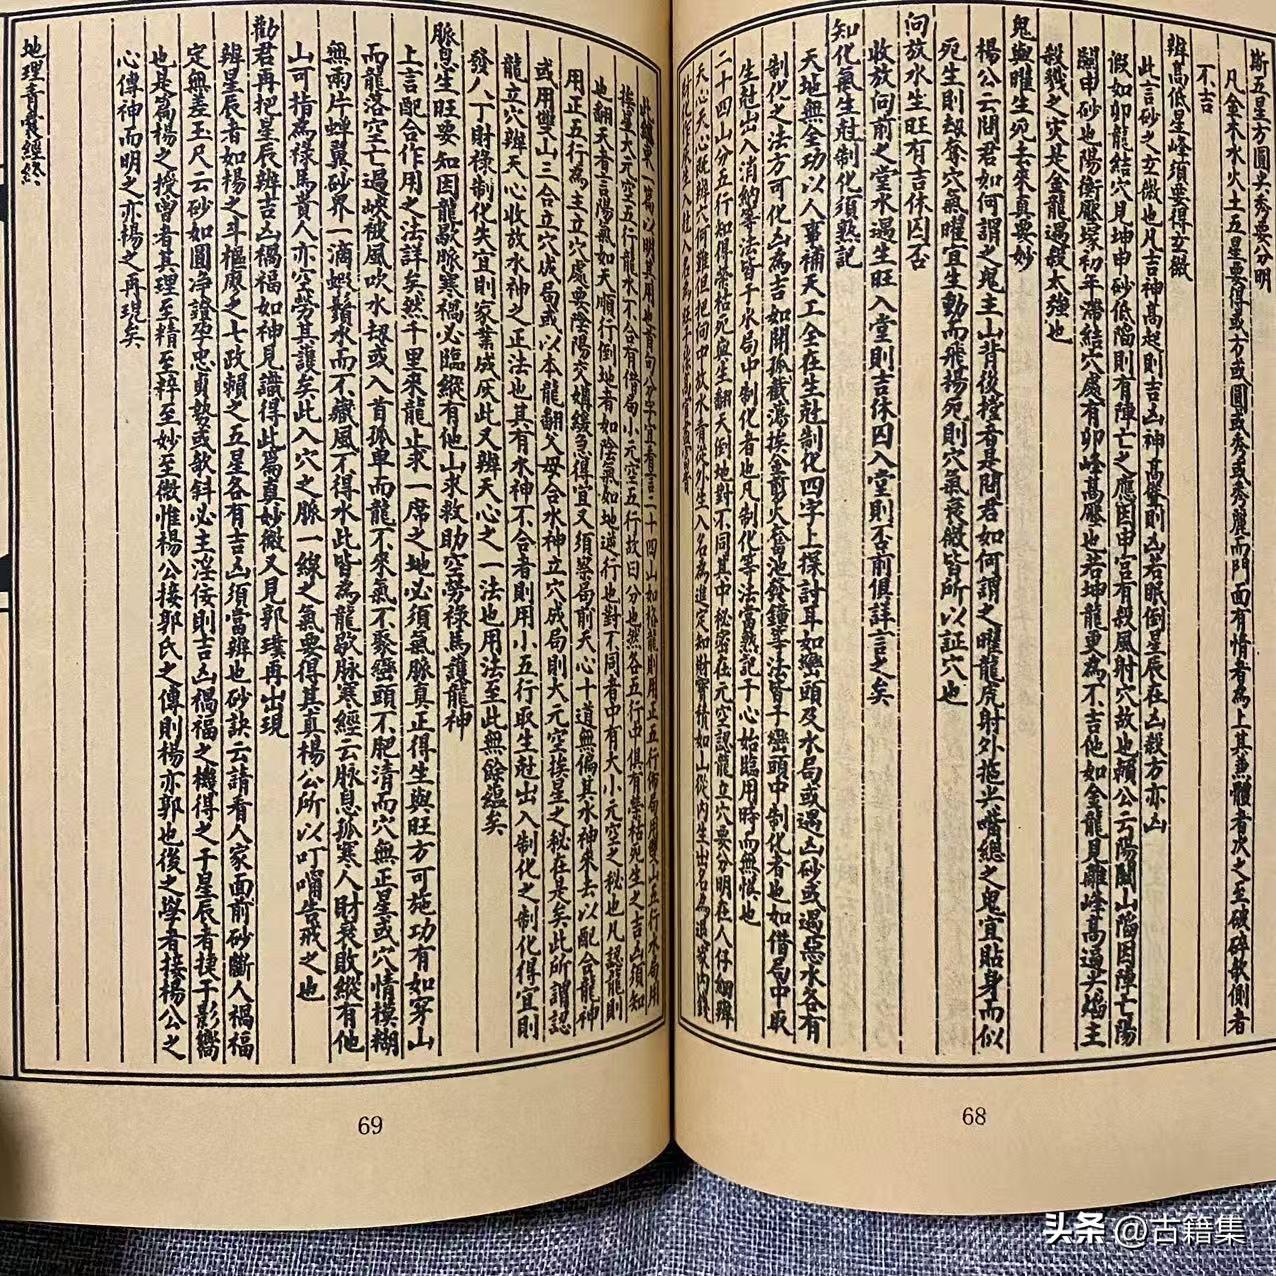 斯五星方圓尖秀要分明
凡金木水火土五星要得或方或圓或秀或秀麗而門面有情者為上其兼體者次之至破碎欹側者
不吉
辨高低星峰須要得玄微
此言砂之玄微也凡吉神高起則吉凶神高聳則凶若眠倒星辰在凶殺方亦凶
假如卯龍結穴見坤申砂低陷則有陣亡之應因申宮有殺風射穴故也賴公云陽關山陷因陣亡陽
關申砂也陽衡壓塚初年滯結穴處有卯峰高壓也若坤龍更為不吉他如金龍見離峰高過尖熖主
殺戮之灾是金龍遇殺太強也
鬼與曜生死去來真要妙
楊公云問君如何謂之鬼主山背後撑者是問君如何謂之曜龍虎射外拖尖嘴總之鬼宜貼身而似
死生則刼奪穴氣曜宜生動而飛揚死則穴氣衰微皆所以証穴也
向放水生旺有吉休囚否
收放向前之堂水過生旺入堂則吉休囚入堂則否前俱詳言之矣
知化氣生尅制化須熟記
天地無全功以人事補天工全在生尅制化四字上探討耳如巒頭及水局或遇凶砂或遇惡水各有
制化之法方可化凶為吉如開孤截蕩挨金剪火奮池發鐘等法皆于巒頭中制化者也如借局中取
生尅出入消納等法皆于水局中制化者也凡制化等法當熟記于心始臨用時而無悞也
二十四山分五行知得榮枯死與生翻天倒地對不同其中秘密在元空認龍立穴要分明在人仔細辨
天心天心既辨穴何難但把向中放水看從外生入名為進定知財寶積如山從內生出名為退家內錢
財化作 生入尅入名為旺子孫 官 富貴
此 單一篇以明其用也首句分字宜看言二十四山如格龍則用正五行佈局用雙山五行水局用
挨星大元空五行龍水不合有借局小元空五行故曰分也然各五行中俱有榮枯死生之吉凶須知
也翻天者言陽氣如天順行倒地者如陰氣如地逆行也對不同者中有大小元空之秘也凡認龍則
用正五行為主立穴處要陰陽交媾緩急得宜又須察局前天心十道無偏其水神來去以配合龍神
或用雙山三合立穴成局或以本龍翻父母合水神立穴成局則大元空挨星之秘在是矣此所謂認
龍立穴辨天心收放水神之正法也其有水神不合者則用小五行取生尅出入制化之制化得宜則
發八丁財祿制化失宜則家業成灰此又辨天心之一法也用法至此無餘蘊矣
脈息生旺要知因龍歇脈寒禍必臨縱有他山求救助空勞祿馬護龍神
上言配合作用之法詳矣然千里來龍止求一席之地必須氣脈真正得生與旺方可施功有如穿山
而龍落空亡過峽被風吹水刼或入首孤單而龍不來氣不聚巒頭不肥清而穴無正星或穴情模糊
無兩片蟬翼砂界一滴蝦鬚水而不藏風不得水此皆為龍歇脉寒經云脉息孤寒人財衰敗縱有他
山可指為祿馬貴人亦空勞其護矣此入穴之脈一線之氣要得其真楊公所以叮嚀告戒之也
勸君再把星辰辨吉凶禍福如神見識得此篇真妙微又見郭璞再出現
辨星辰者如楊之斗樞廖之七政賴之五星各有吉凶須當辨也砂訣云請看人家面前砂斷人禍福
定無差玉尺云砂如圓净證孕忠貞勢或欹斜必主淫佞則吉凶禍福之機得之于星辰者捷于影嚮
也是篇楊之授曾者其理至精至粹至妙至微惟楊公接郭氏之傳則楊亦郭也後之學者接楊公之
心傳神而明之亦楊之再現矣
地理青囊經終
69
68
头条 @古籍集